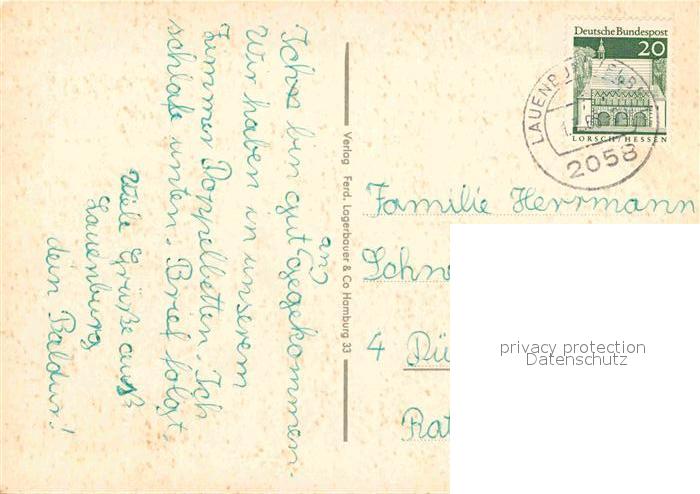 Ich bin gut (an) gegekommen.
Wir haben in unserem
Zimmer Doppelbetten. Ich
schlafe unten. Brief folgt.
Viele Grüße auß
Lauenburg
dein Baldur!
Verlag Ferd. Lagerbauer & Co Hamburg 33
Deutsche Bundespost
20
LORSCH/HESSEN
LAUENBURG
2058
Familie Herrmann
Schw
4 Dü
Rat
privacy protection
Datenschutz